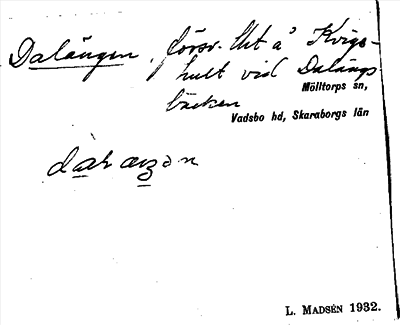 Dalängen, försv. lht å Kvigs-
hult vid Dalängs-
bäcken
Mölltorps sn,
Vadsbo hd, Skaraborgs län
L. MADSÉN 1932.